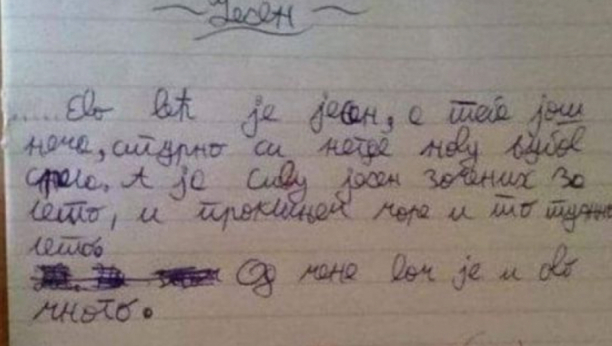 Јесен
.....Ево већ је јесен, а тебе још
нема, сигурно си негде нову љубав
срела. А ја сиву јесен замених за
лето, и проклињем море и то тужно
лето.
Од мене вам је и ово
много.